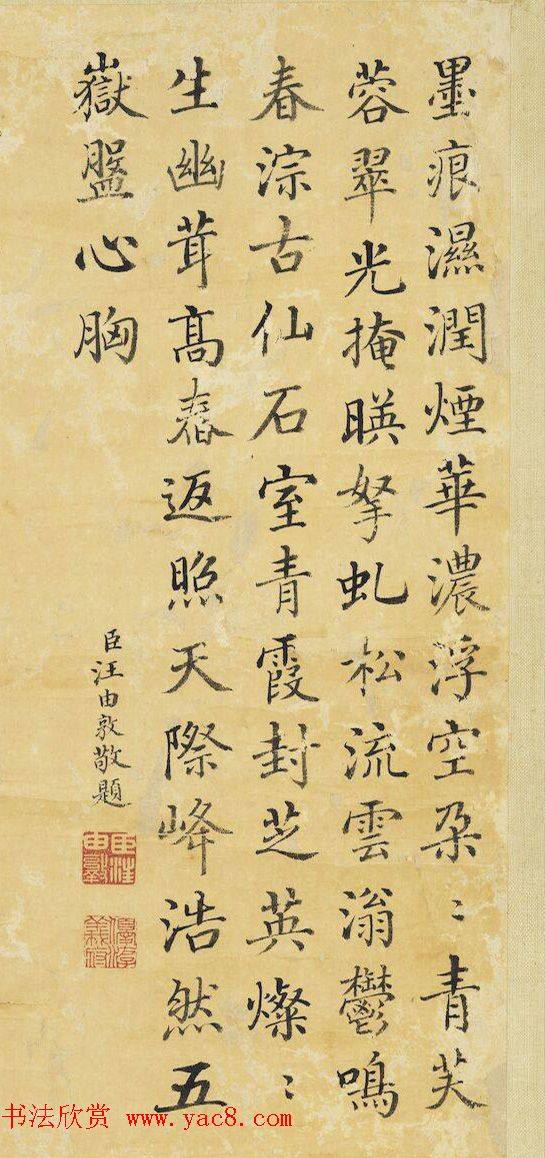 墨痕濕潤煙華濃浮空朶〻青芙
蓉翠光掩暎拏虬松流雲滃鬱鳴
春淙古仙石室青霞封芝英燦〻
生幽茸髙舂返照天際峰浩然五
嶽盪心胸
臣汪由敦敬題
书法欣赏 www.yac8.com